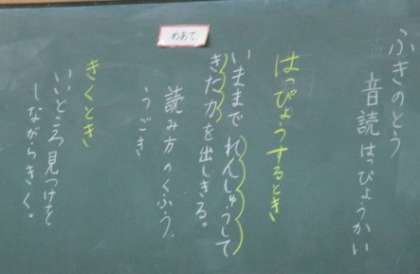 ふきのとう
音読はっぴょうかい
めあて
はっぴょうするとき
いままでれんしゅうして
きた力を出しきる。
読み方のくふう、
うごき
きくとき
いいところ見つけを
しながらきく。